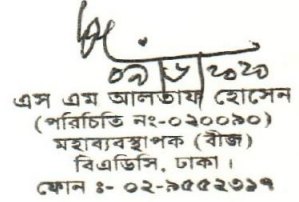 ০৯|৮|২০২০
এস এম আলতাফ হোসেন
(পরিচিতি নং-০২০০৯০)
মহাব্যবস্থাপক (বীজ)
বিএডিসি, ঢাকা।
ফোন ঃ- ০২-৯৫৫২৩১৭